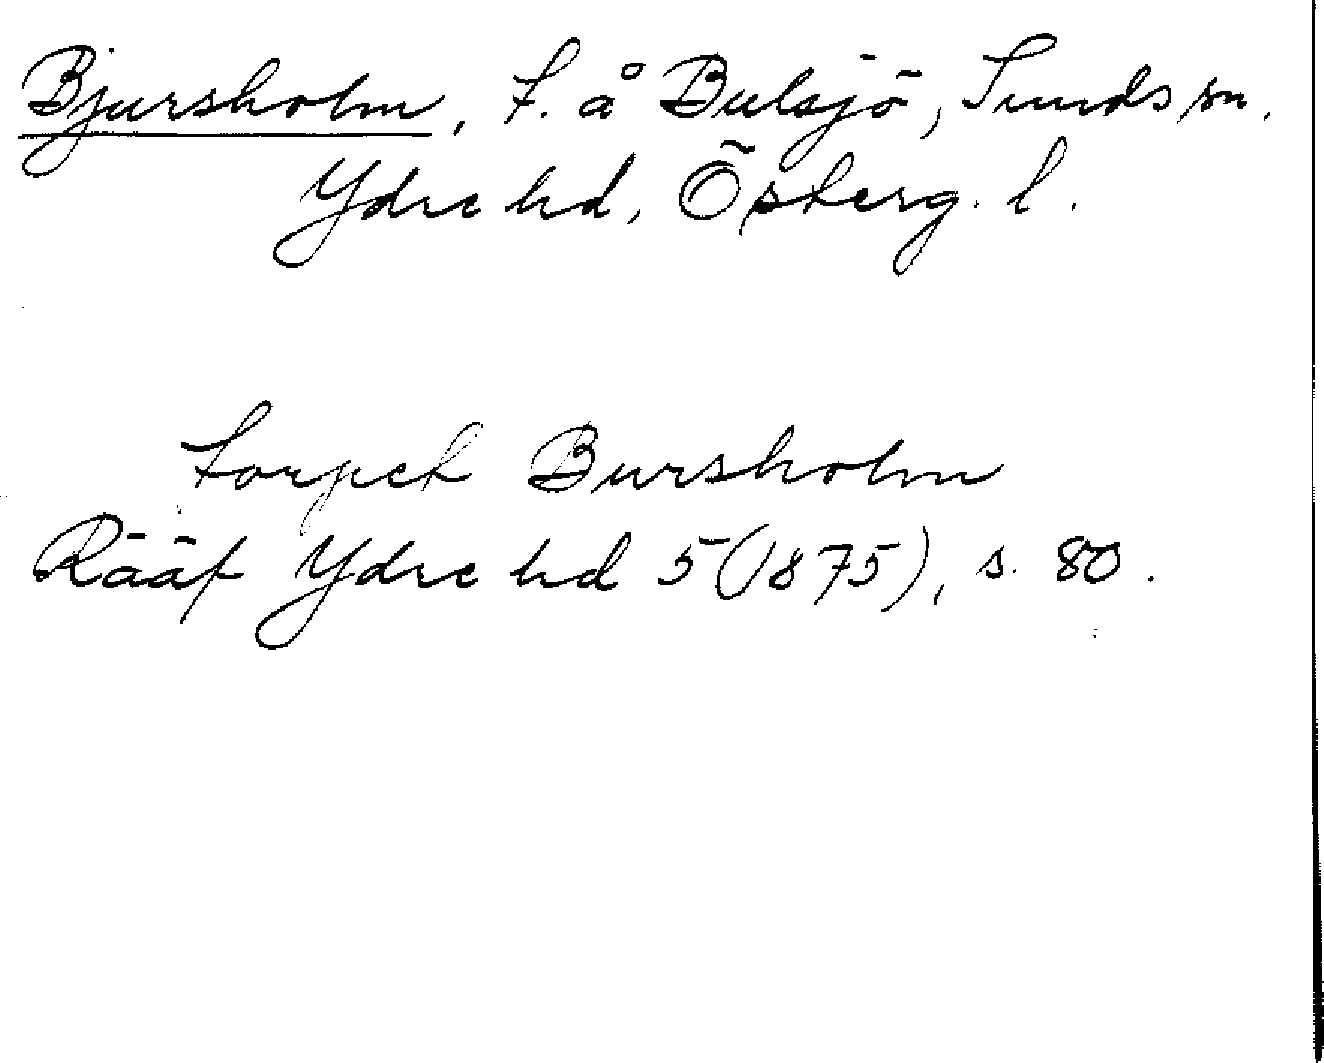 Bjursholm, t. å Bulsjö, Sunds sn.
Ydre hd, Österg. l.
torpet Bursholm
Rääf Ydre hd 5 (1875), s. 80.